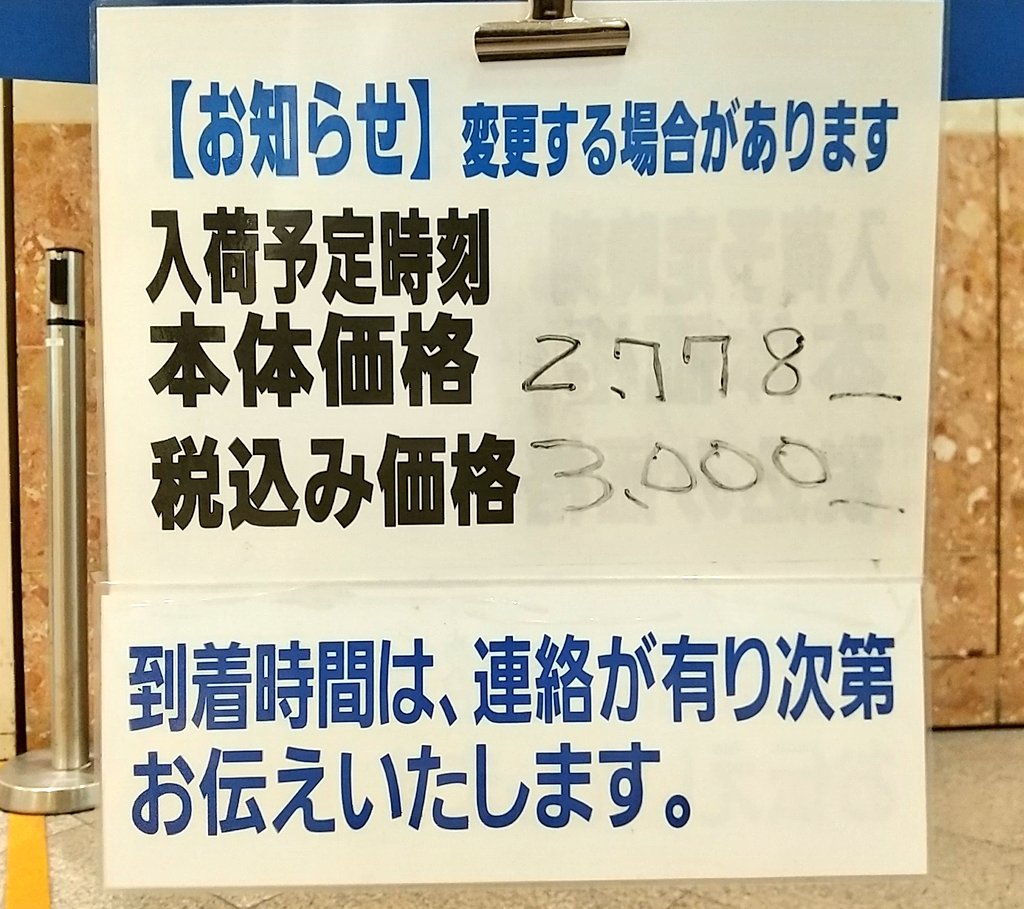 【お知らせ】変更する場合があります
入荷予定時刻
本体価格 2.778_
税込み価格 3.000_
到着時間は、連絡が有り次第
お伝えいたします。